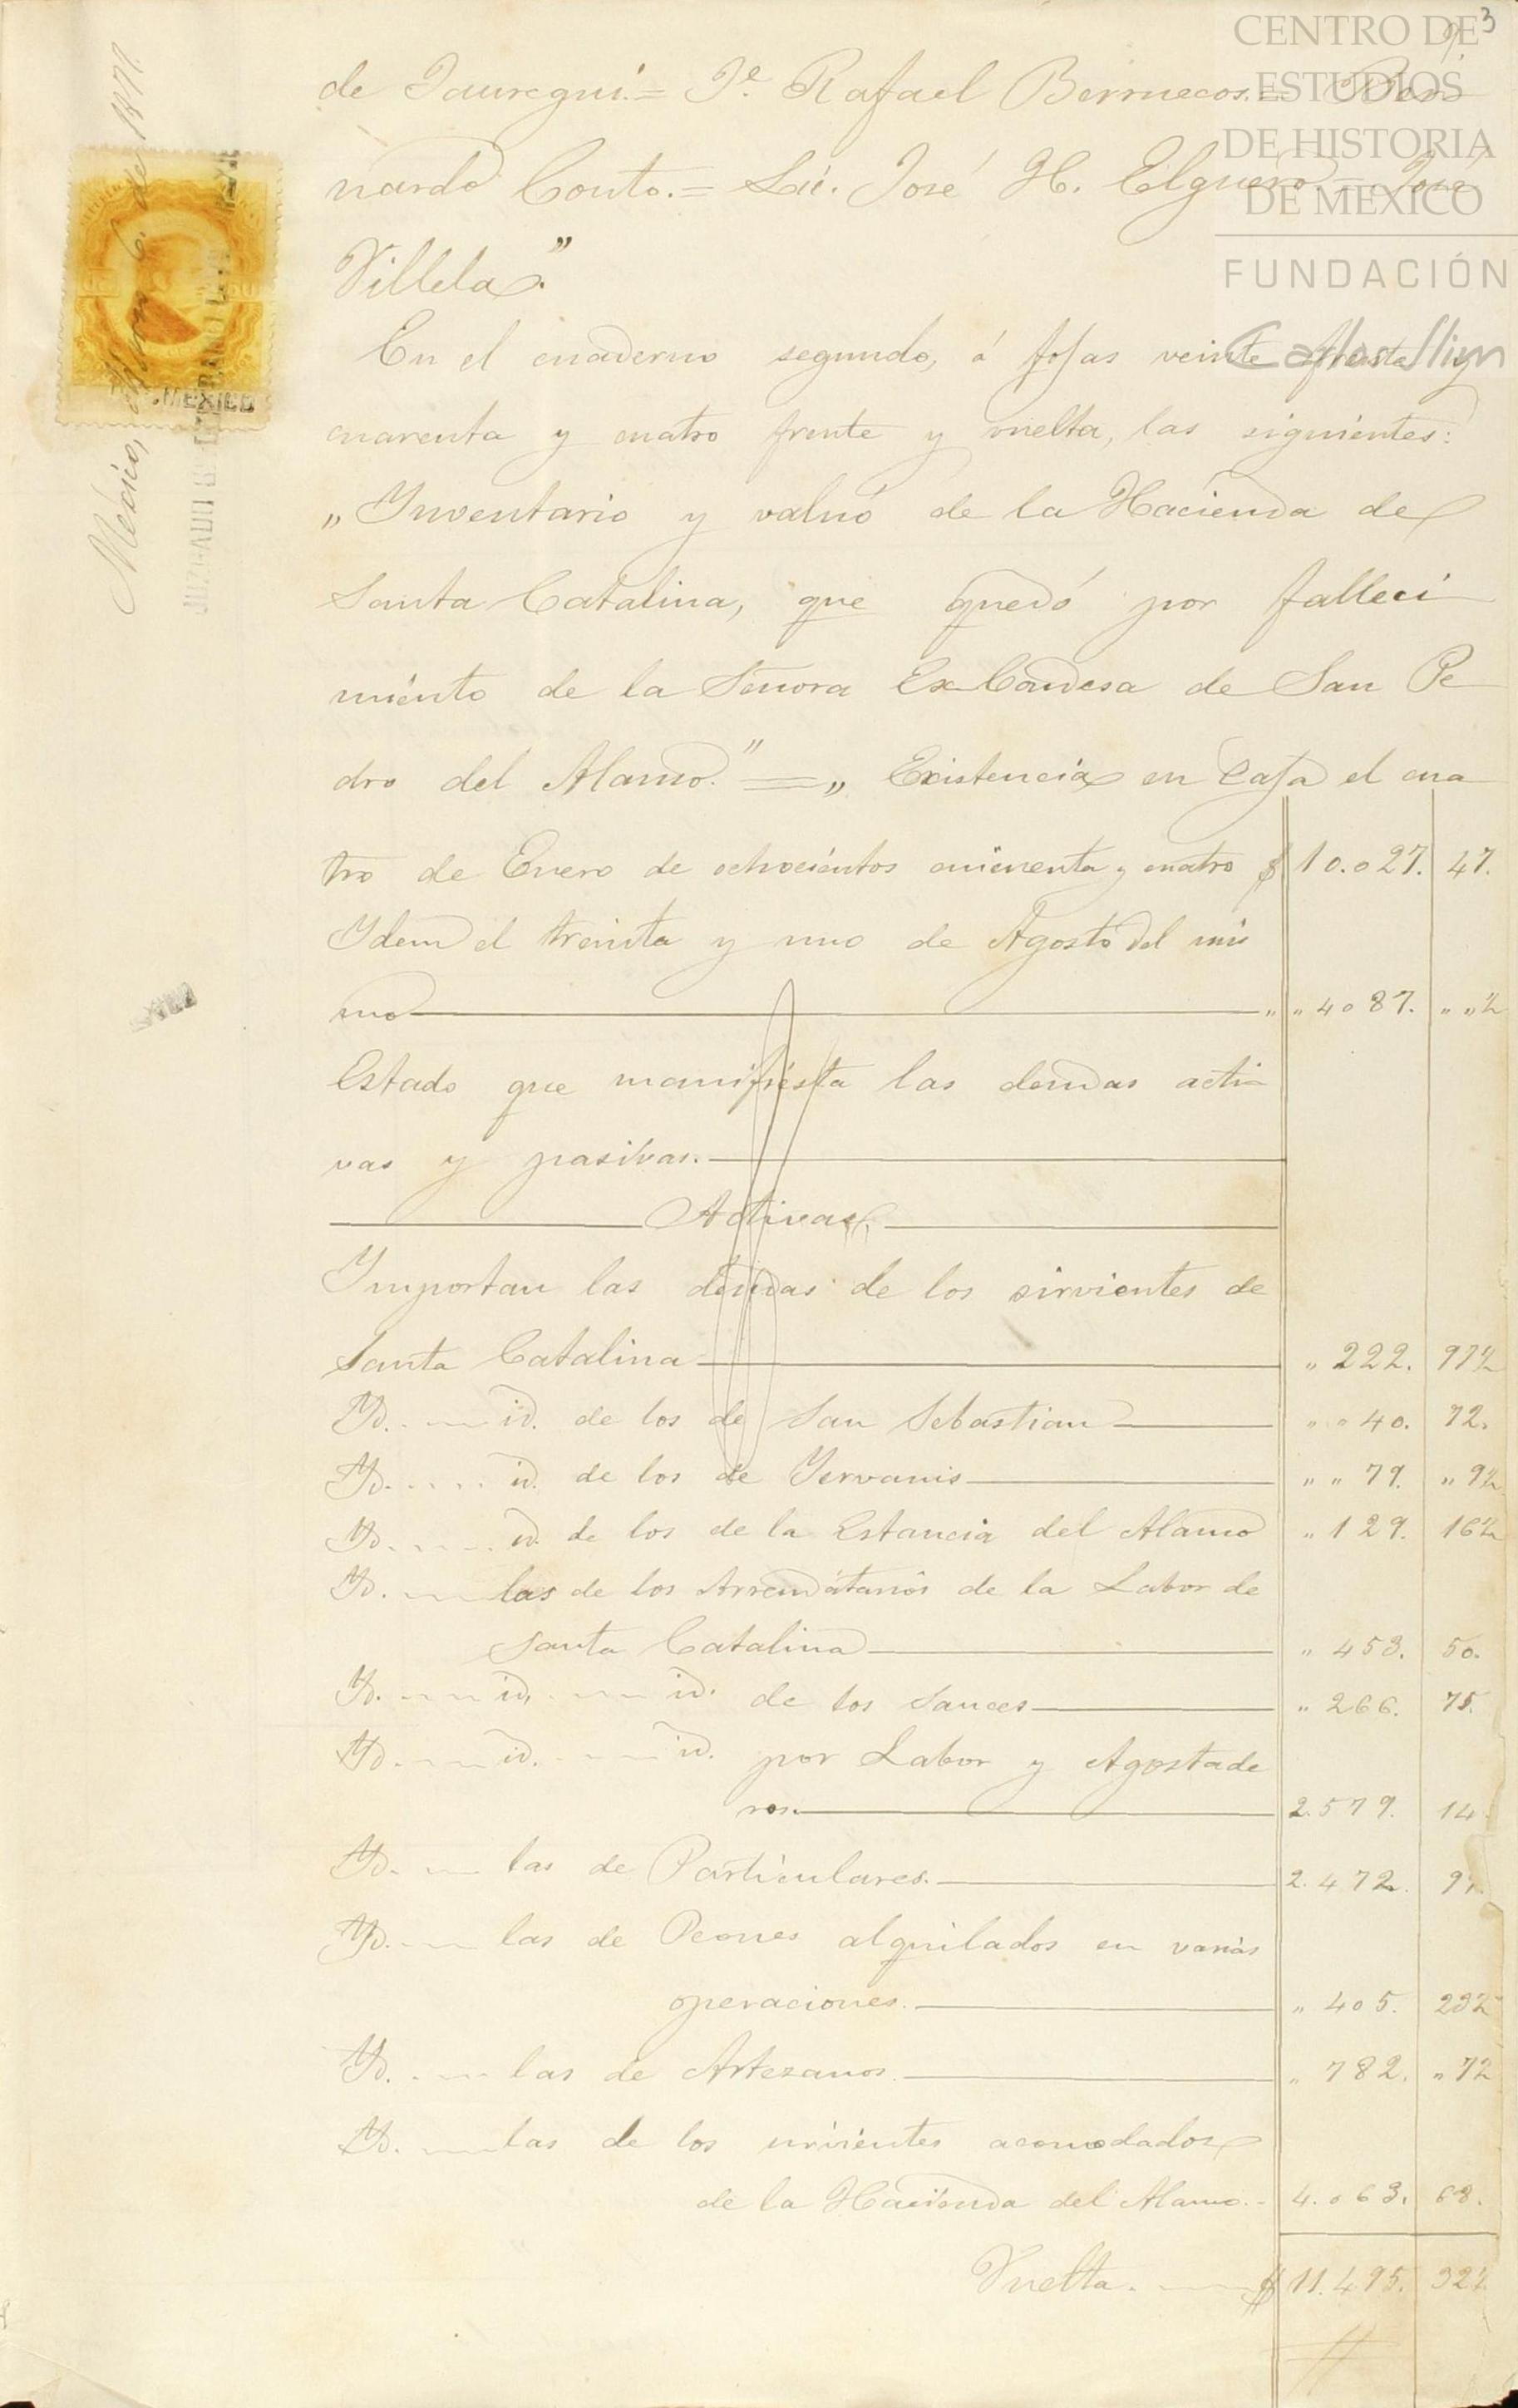 3
CENTRO DE
ESTUDIOS
DE HISTORIA
DE MEXICO
FUNDACIÓN
Carlos Slim
de Jauregui.= Je. Rafael Berruecos.= Ber
nardo Couto.= Lic. José H. Elguero = José
Villela."
En el cuaderno segundo, á fojas veinte frente y
cuarenta y cuatro frente y vuelta, las siguientes:
„Inventario y valuó de la Hacienda de
Santa Catalina, que quedó por falleci
miento de la Señora Ex-Condesa de San Pe
dro del Alamo." = „Existencia en Caja el cua
tro de Enero de ochocientos cincuenta y cuatro $ 10.027. 47.
Idem el treinta y uno de Agosto del mis
mo „ „ 4087. „ „ ½
Estado que manifiesta las deudas acti
vas y pasivas.
Activas.
Importan las deudas de los sirvientes de
Santa Catalina „ 222. 97½
Yd. id. de los de San Sebastian „ „ 40. 72.
Yd. id. de los de Yervanis „ „ 79. „ 9½
Yd. id. de los de la Estancia del Alamo „ 129. 16½
Yd. las de los Arrendatarios de la Labor de
Santa Catalina „ 453. 50.
Yd. id. id. de los Sauces „ 266. 75.
Yd. id. id. por Labor y Agostade
ros. 2.579. 14
Yd. las de Particulares. 2.472.
Yd. las de Peones alquilados en varias
operaciones. „ 405. 23½
Yd. las de Artezanos. „ 782. „ 7½
Yd. las de los sirvientes acomodados
de la Hacienda del Alamo. 4.063. 68.
Vuelta. $ 11.495. 32½
Mexico, de 1871
MEXICO
JUZGADO